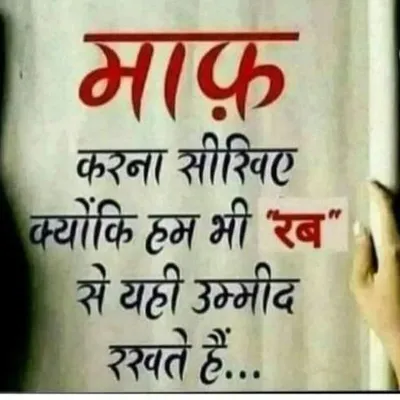 माफ़
करना सीखिए
क्योंकि हम भी "रब"
से यही उम्मीद
रखते हैं...